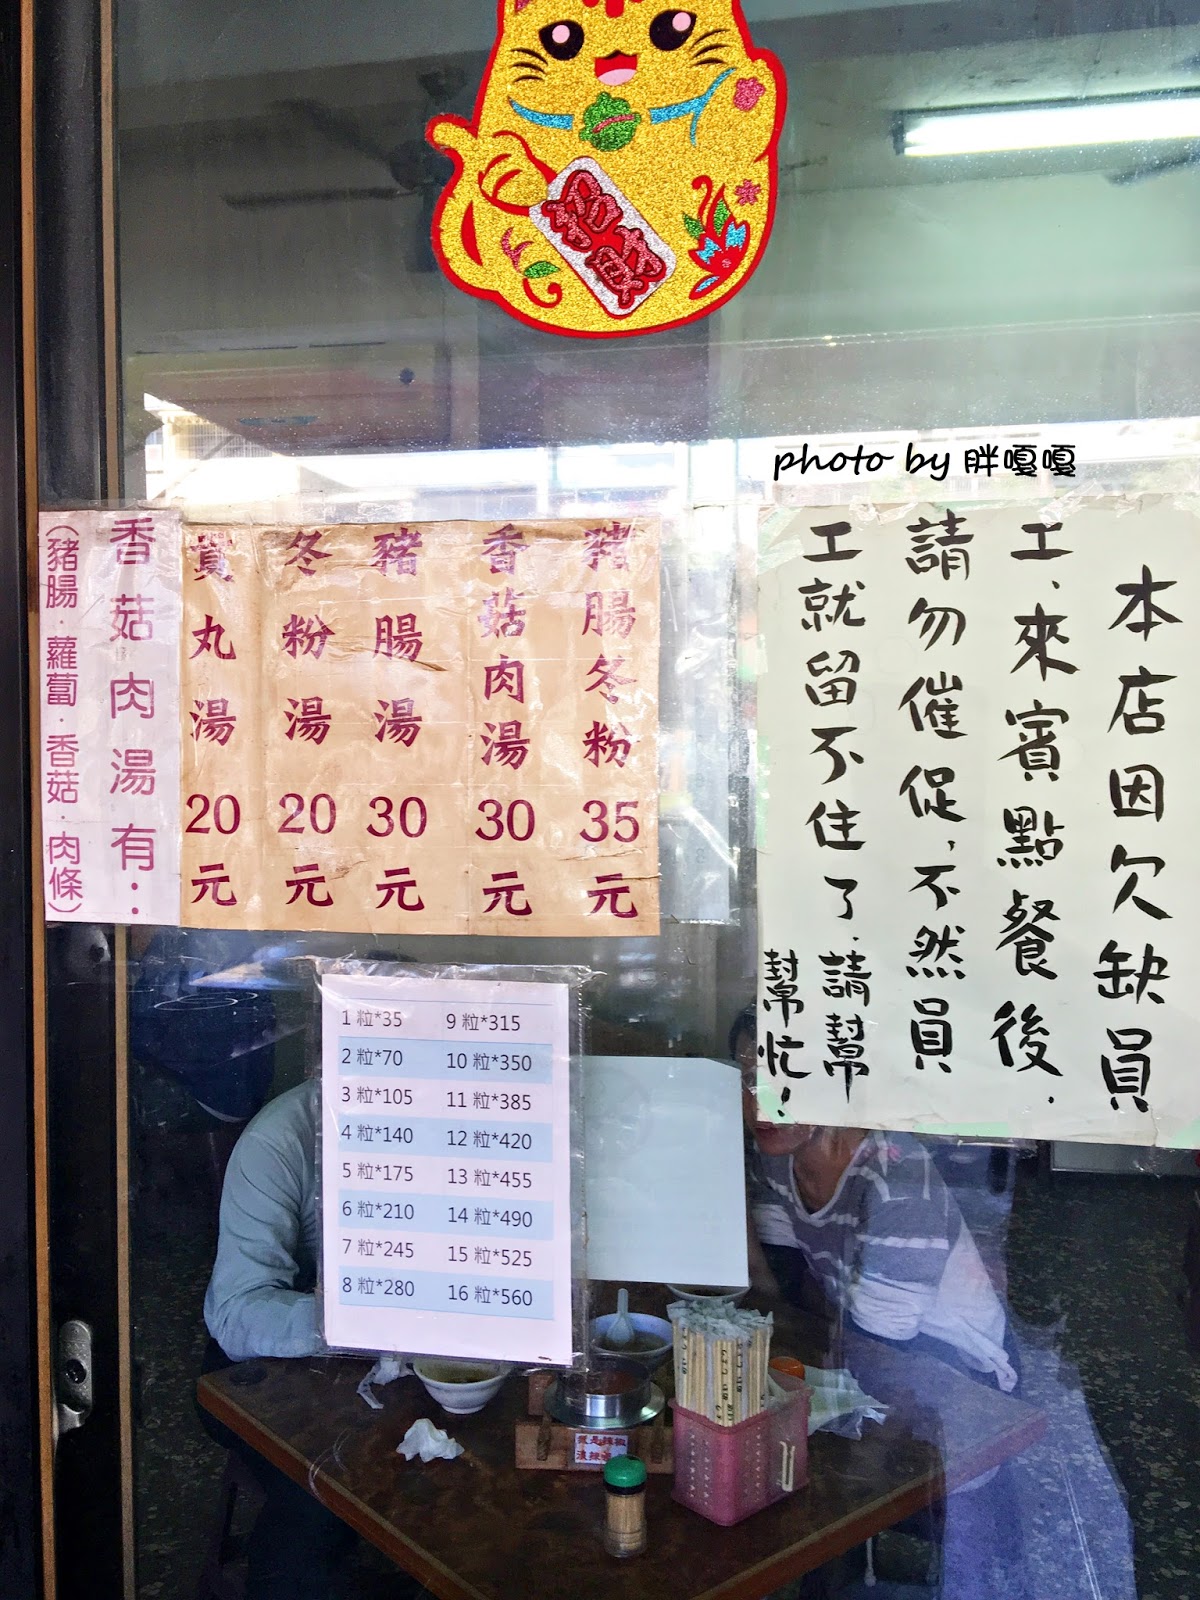 招財
photo by 胖嘎嘎
本店因欠缺員
工、來賓點餐後，
請勿催促，不然員
工就留不住了，請幫
幫忙！
豬腸冬粉35元
香菇肉湯30元
豬腸湯30元
冬粉湯20元
貢丸湯20元
香菇肉湯有：
（豬腸．蘿蔔．香菇．肉條）
1 粒*35 9 粒*315
2 粒*70 10 粒*350
3 粒*105 11 粒*385
4 粒*140 12 粒*420
5 粒*175 13 粒*455
6 粒*210 14 粒*490
7 粒*245 15 粒*525
8 粒*280 16 粒*560